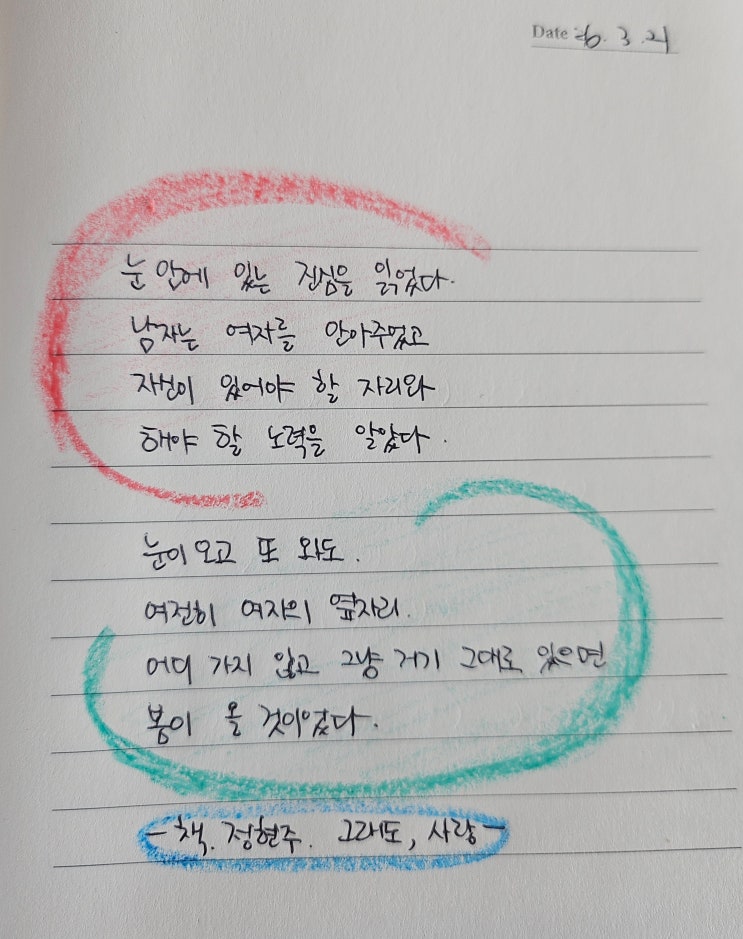 Date 26. 3. 21
눈 안에 있는 진심을 읽었다.
남자는 여자를 안아주었고
자신이 있어야 할 자리와
해야 할 노력을 알았다.
눈이 오고 또 와도.
여전히 여자의 옆자리.
어디 가지 않고 그냥 거기 그대로 있으면
봄이 올 것이었다.
- 책. 정현주. 그래도, 사랑 -